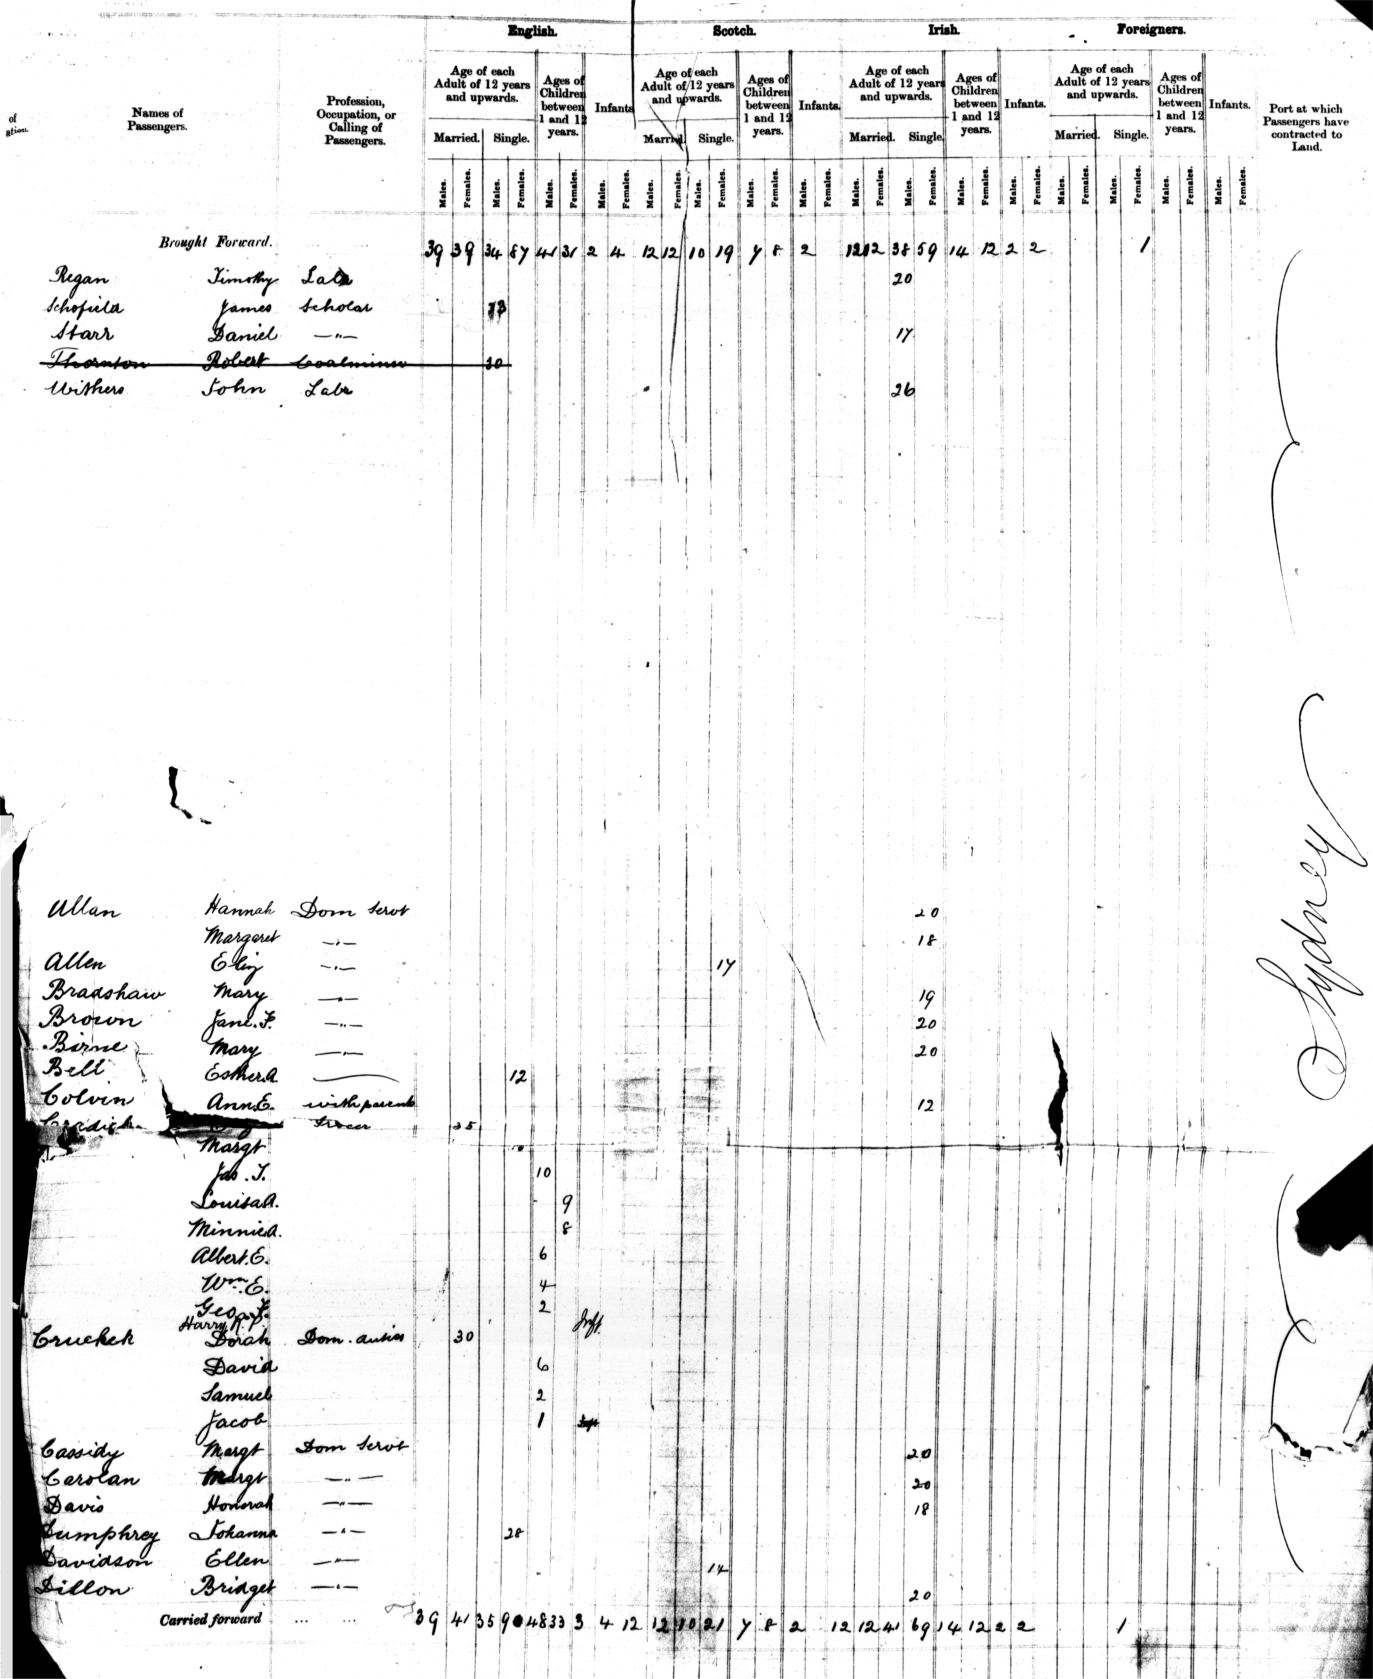 English. Scotch. Irish. Foreigners.
of
ation.
Names of Passengers.
Profession, Occupation, or Calling of Passengers.
Age of each Adult of 12 years and upwards. Ages of Children between 1 and 12 years. Infants Age of each Adult of 12 years and upwards. Ages of Children between 1 and 12 years. Infants. Age of each Adult of 12 years and upwards. Ages of Children between 1 and 12 years. Infants. Age of each Adult of 12 years and upwards. Ages of Children between 1 and 12 years. Infants.
Port at which Passengers have contracted to Land.
Married. Single. Married. Single. Married. Single. Married. Single.
Males. Females. Males. Females. Males. Females. Males. Females. Males. Females. Males. Females. Males. Females. Males. Females. Males. Females. Males. Females. Males. Females. Males. Females. Males. Females. Males. Females. Males. Females. Males. Females.
Brought Forward. 39 39 34 87 41 31 2 4 12 12 10 19 7 8 2 12 12 38 59 14 12 2 2 1
Regan Timothy Labr 20
Schofield James Scholar 13
Starr Daniel —"— 17
Thornton Robert Coalminer 30
Withers John Labr 26
Sydney
Allan Hannah Dom Servt 20
Margaret —"— 18
Allen Eliz —"— 17
Bradshaw Mary —"— 19
Brown Jane. F. —"— 20
Birne Mary —"— 20
Bell Esther A. 12
Colvin Ann E. with parents 12
35
Margt
Jas. T. 10
Louisa A. 9
Minnie A. 8
Albert. E. 6
Wm. E. 4
Geo. F. 2
Harry R. P. Inft
Dorah Dom. duties 30
David 6
Samuel 2
Jacob 1
Cassidy Margt Dom Servt 20
Carolan Margt —"— 20
Davis Honorah —"— 18
Dumphrey Johanna —"— 28
Davidson Ellen —"— 14
Dillon Bridget —"— 20
Carried forward ... ... 39 41 35 90 48 33 3 4 12 12 10 21 7 8 2 12 12 41 69 14 12 2 2 1